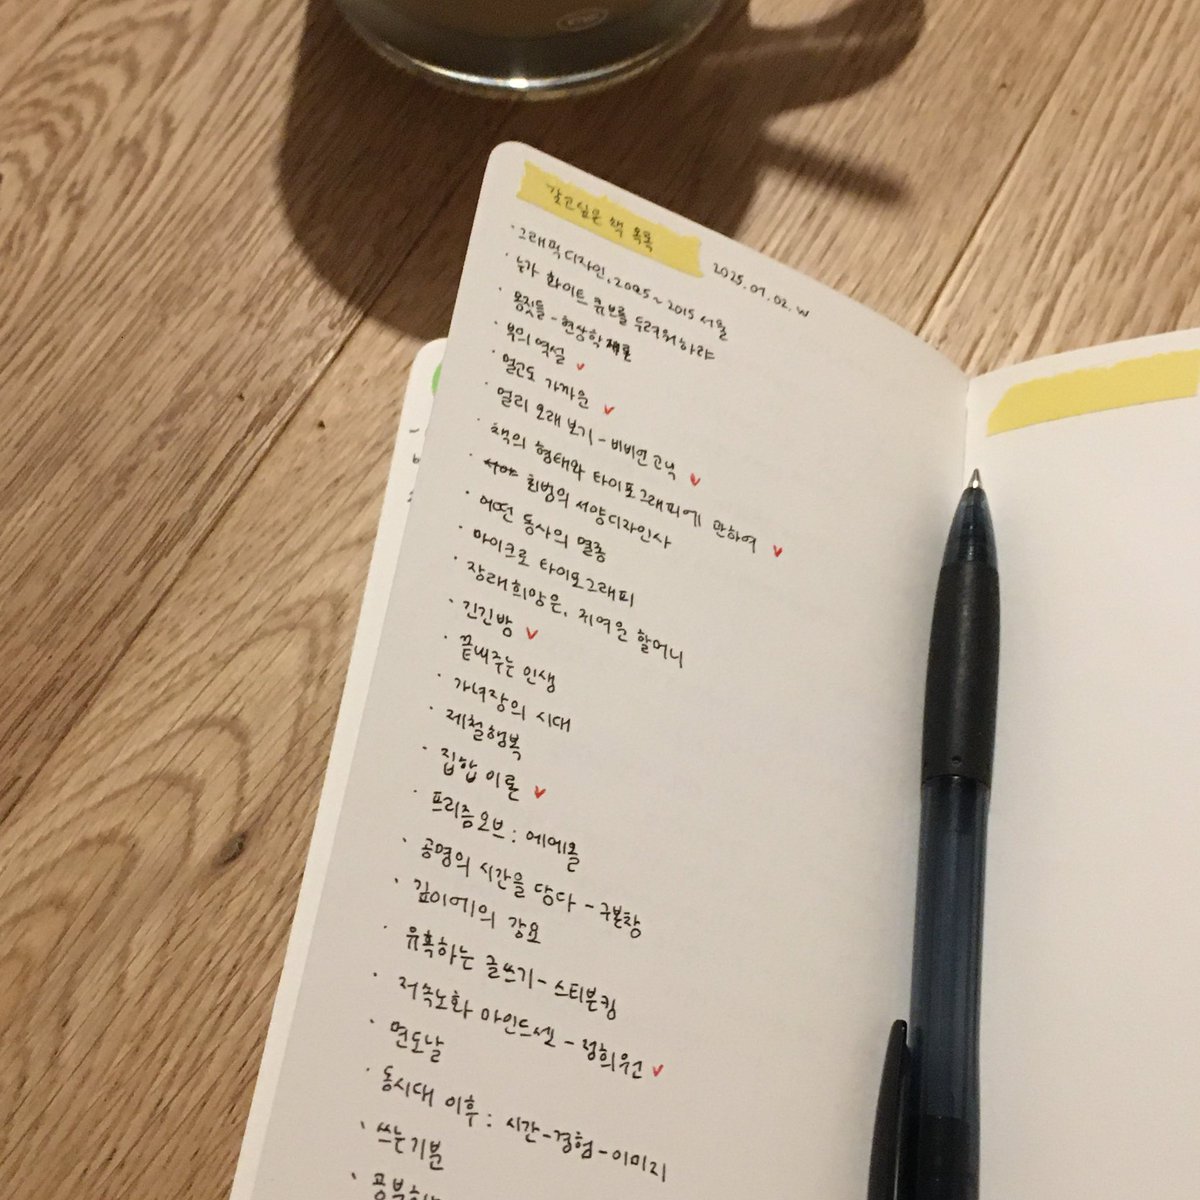 갖고싶은 책 목록
2025.01.02.w
· 그래픽디자인, 2005~2015 서울
· 누가 화이트 큐브를 두려워하랴
· 몸짓들 - 현상학 시론
· 부의 역설 ✓
· 멀고도 가까운 ✓
· 멀리 오래 보기 - 비비언 고닉 ✓
· 책의 형태와 타이포그래피에 관하여 ✓
· 최범의 서양디자인사
· 어떤 동사의 멸종
· 마이크로 타이포그래피
· 장래희망은, 귀여운 할머니
· 긴긴밤 ✓
· 끝내주는 인생
· 가녀장의 시대
· 제철행복
· 집합 이론 ✓
· 프리즘오브 : 애프터썬
· 공명의 시간을 담다 - 구본창
· 깊이에의 강요
· 유혹하는 글쓰기 - 스티븐킹
· 저속노화 마인드셋 - 정희원 ✓
· 면도날
· 동시대 이후 : 시간-경험-이미지
· 쓰는기분